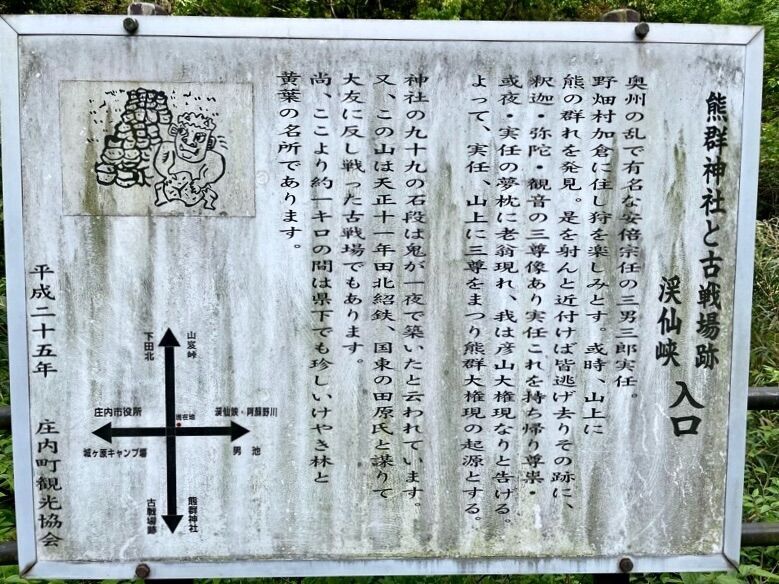 熊群神社と古戦場跡
渓仙峡
入口
奥州の乱で有名な安倍宗任の三男三郎実任。
野畑村加倉に住し狩を楽しみとす。或時、山上に
熊の群れを発見。是を射んと近付けば皆逃げ去りその跡に、
釈迦・弥陀・観音の三尊像あり実任これを持ち帰り尊崇・
或夜・実任の夢枕に老翁現れ、我は彦山大権現なりと告げる。
よって、実任、山上に三尊をまつり熊群大権現の起源とする。
神社の九十九の石段は鬼が一夜で築いたと云われています。
又、この山は天正十一年田北紹鉄、国東の田原氏と謀りて
大友に反し戦った古戦場でもあります。
尚、ここより約一キロの間は県下でも珍しいけやき林と
黄葉の名所であります。
山裒峠
下田北
庄内市役所
城ヶ原キャンプ場
現在地
渓仙峡・阿蘇野川
男池
熊群神社
古戦場跡
平成二十五年 庄内町観光協会